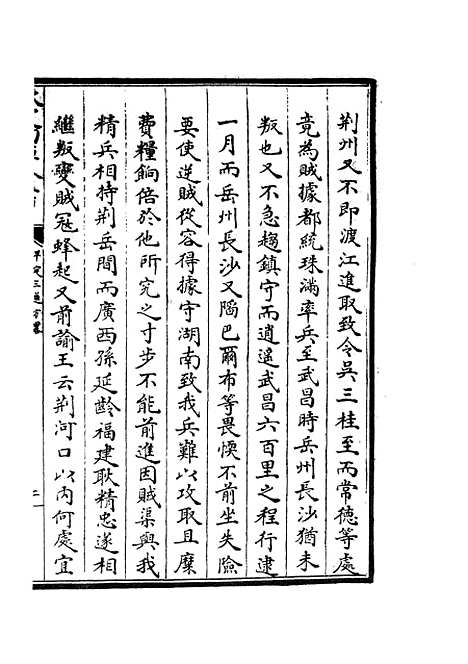 荆州又不即渡江進取致令吳三桂至而常徳等處
竟為賊據都統珠滿率兵至武昌時岳州長沙猶未
叛也又不急趨鎮守而逍遥武昌六百里之程行逮
一月而岳州長沙又陷巴爾布等畏愞不前坐失險
要使逆賊從容得據守湖南致我兵難以攻取且糜
費糧餉倍於他所究之寸步不能前進因賊渠與我
精兵相持荆岳間而廣西孫延齡福建耿精忠遂相
繼叛變賊冦蜂起又前諭王云荆河口以内何處宜
平定三逆方畧